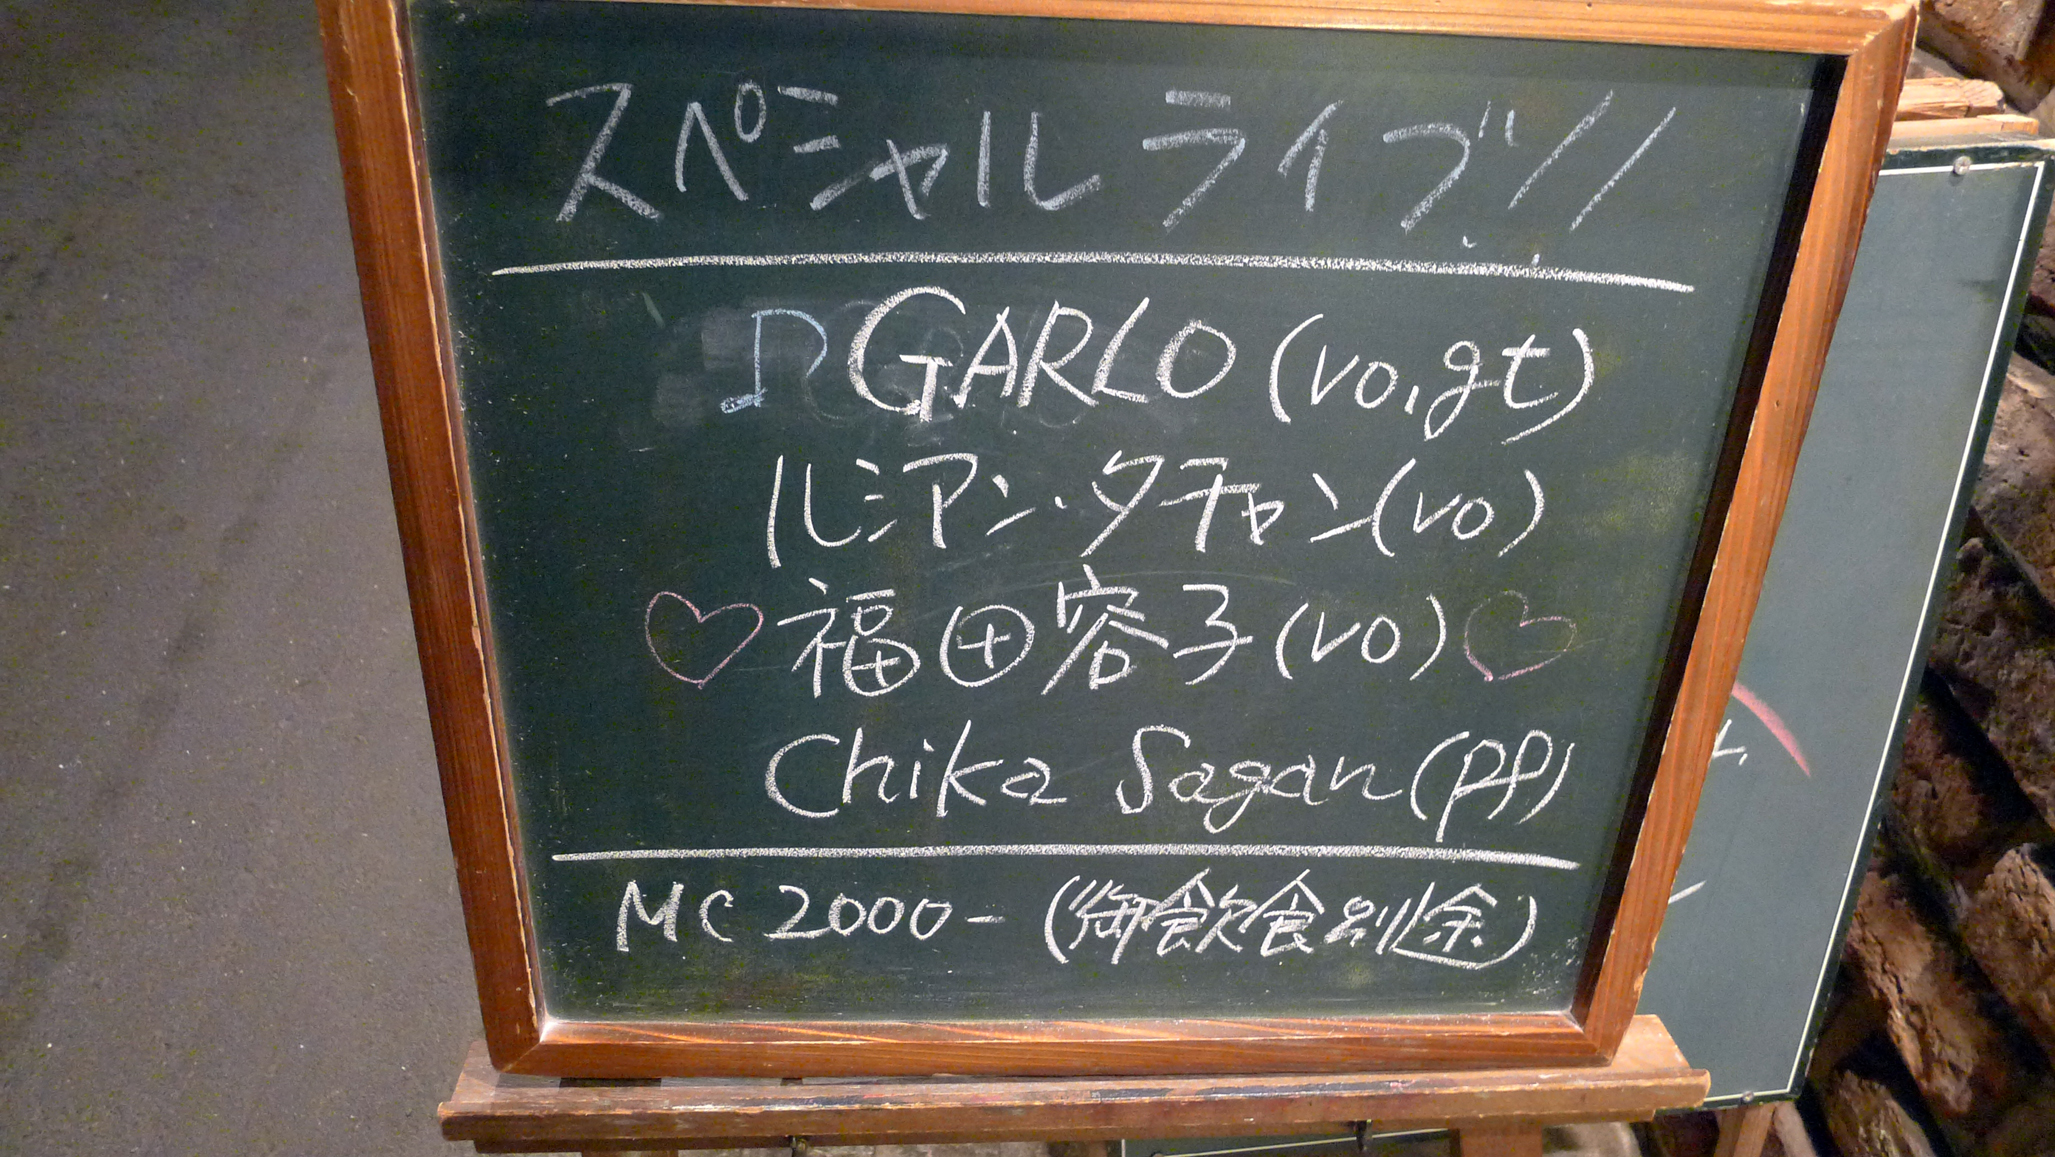 スペシャルライブ!!
♪ GARLO (vo,gt)
ルミアン・タチャン(vo)
♡ 福田容子(vo) ♡
Chika Sagan(pf)
MC 2000- (御飲食別途)